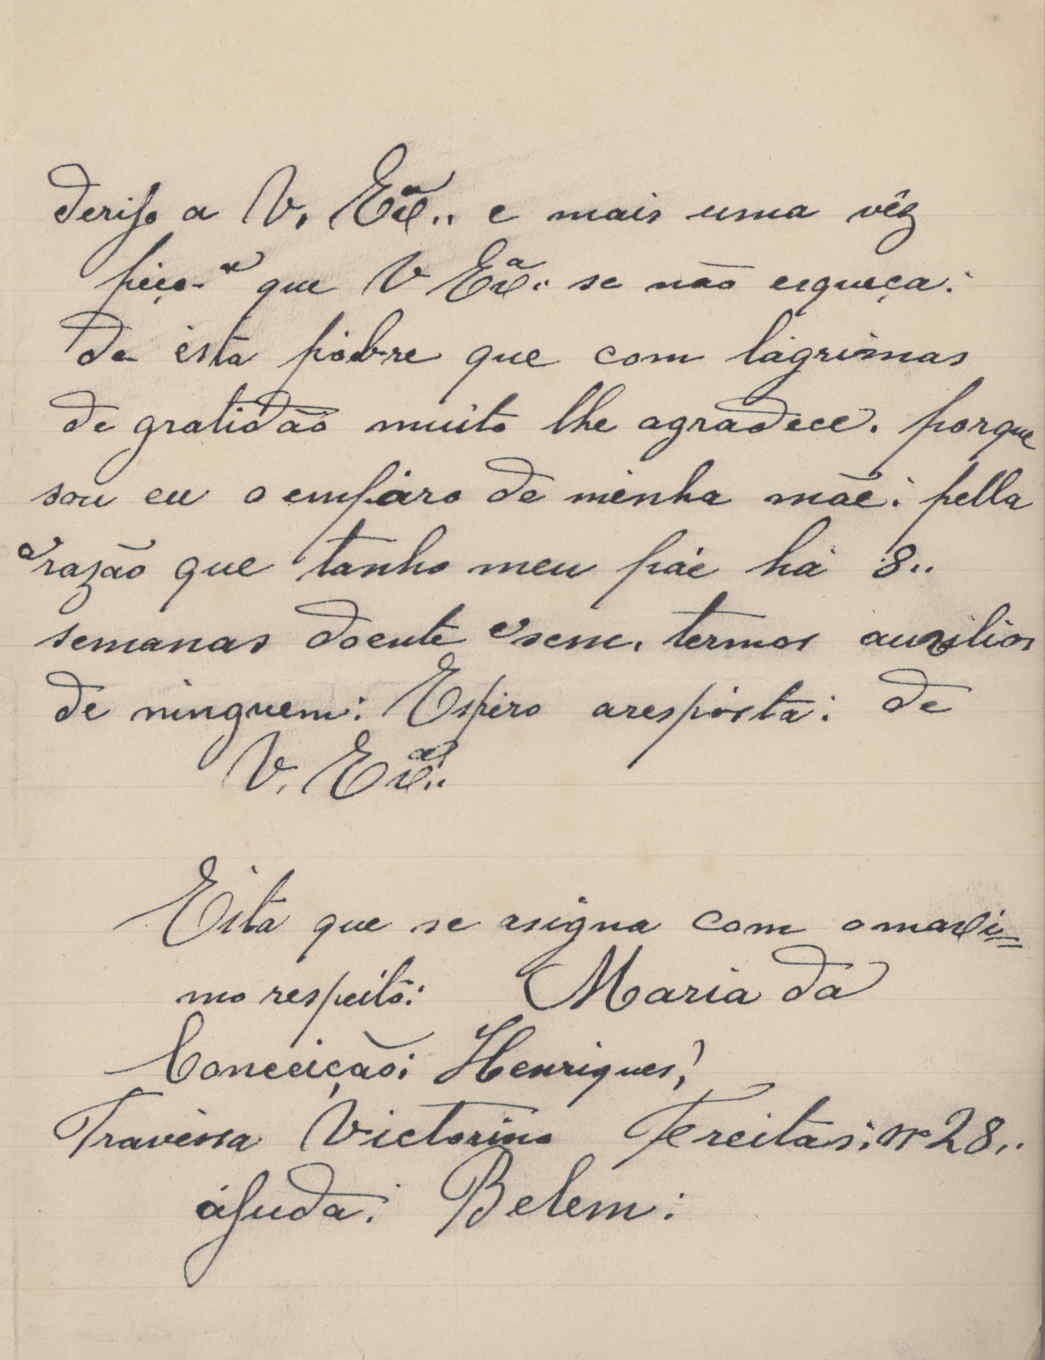 derijo a V. Exª.. e mais uma vêz
peço que V Exª. se não esqueça:
de ésta pobre que com lágrimas
de gratidão muito lhe agradece. porque
sou eu o emparo de minha mãe: pella
razão que tanho meu páe há 8..
semanas doente e sem. termos auxilios
de ninguem: Espero aresposta: de
V. Exª..
Esta que se asigna com omaxi=
mo respeito: Maria da
Conceição: Henriques;
Travéssa Victorino Freitas: nº 28..
ájuda: Belem: